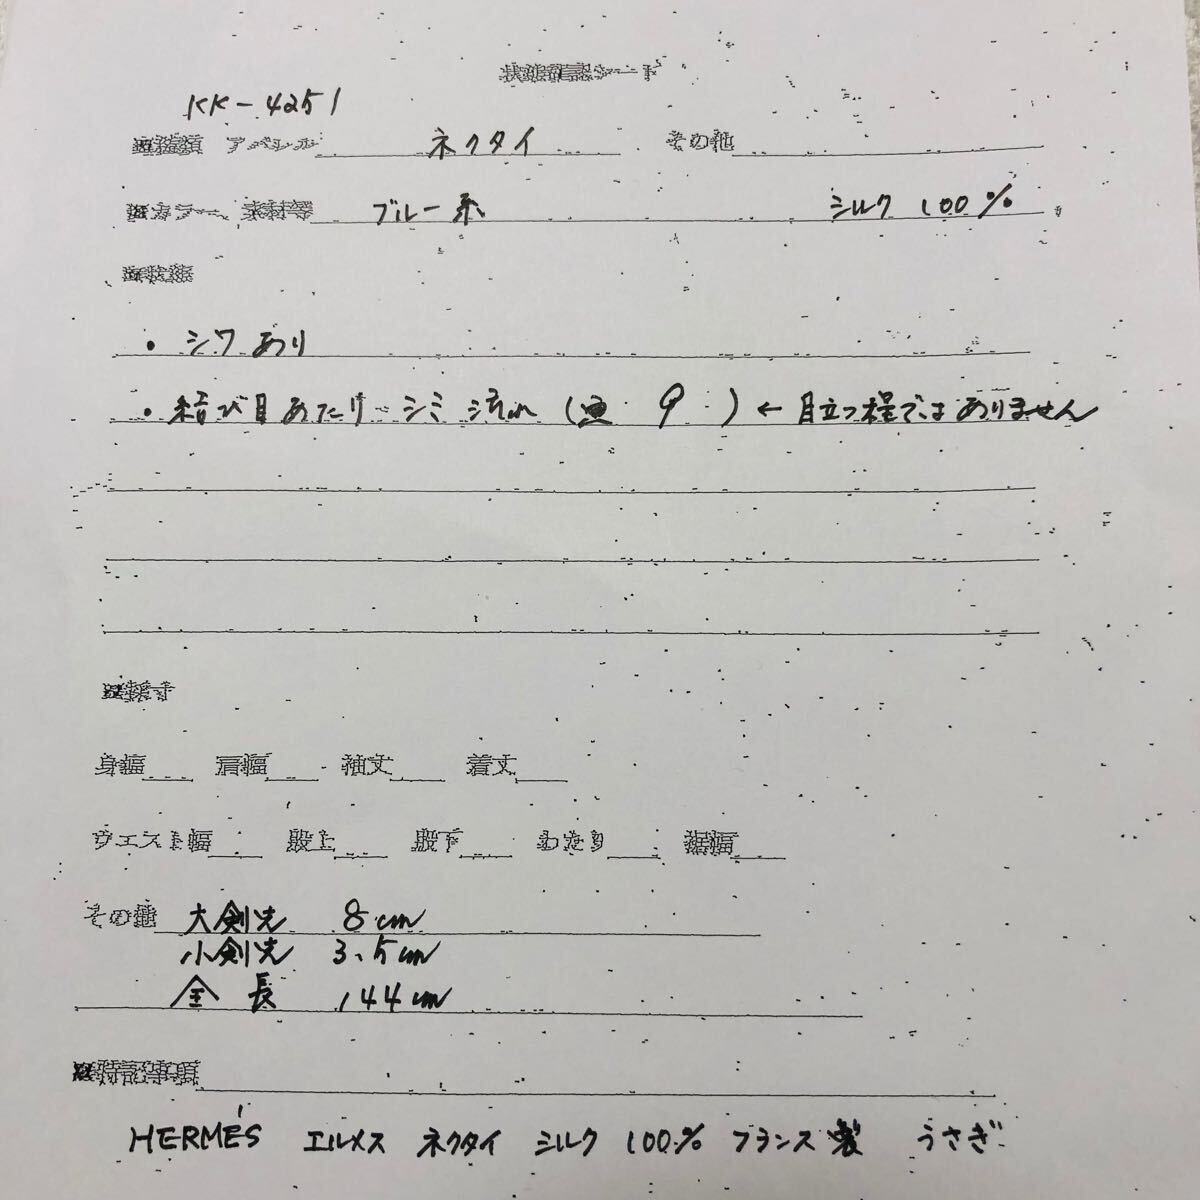 状態確認シート
KK-4251
種類 アパレル ネクタイ その他
カラー、素材等 ブルー系 シルク 100%
状態
・シワあり
・結び目あたり シミ 汚れ ( 9 ) ← 目立つ程ではありません
採寸
身幅 肩幅 袖丈 着丈
ウエスト幅 股上 股下 わたり 裾幅
その他 大剣先 8cm
小剣先 3.5cm
全長 144cm
特記事項
HERMÉS エルメス ネクタイ シルク 100% フランス製 うさぎ